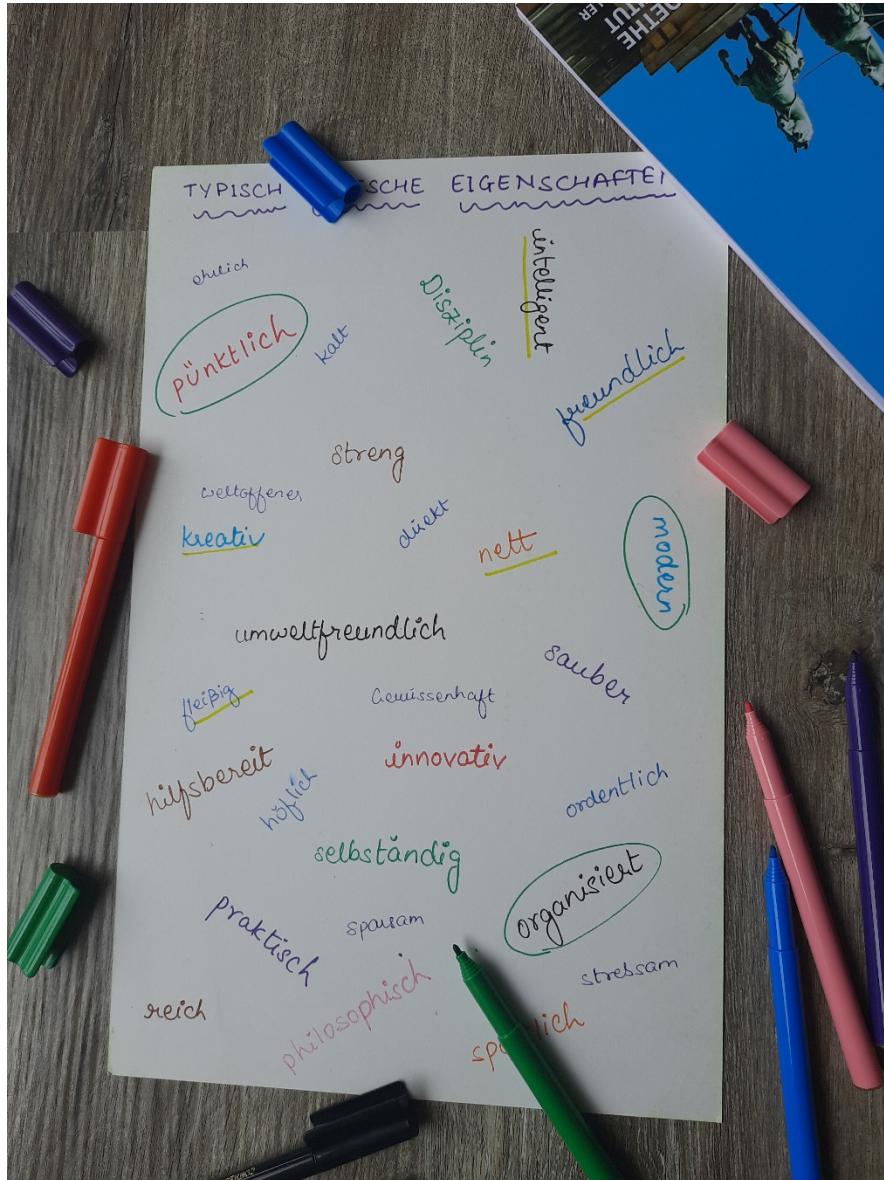 TYPISCH SCHE EIGENSCHAFTEN
ehrlich
intelligent
Disziplin
pünktlich
kalt
freundlich
streng
weltoffener
direkt
kreativ
nett
modern
umweltfreundlich
sauber
fleißig
Gewissenhaft
innovativ
hilfsbereit
höflich
ordentlich
selbständig
organisiert
praktisch
sparsam
strebsam
philosophisch
reich
GOETHE